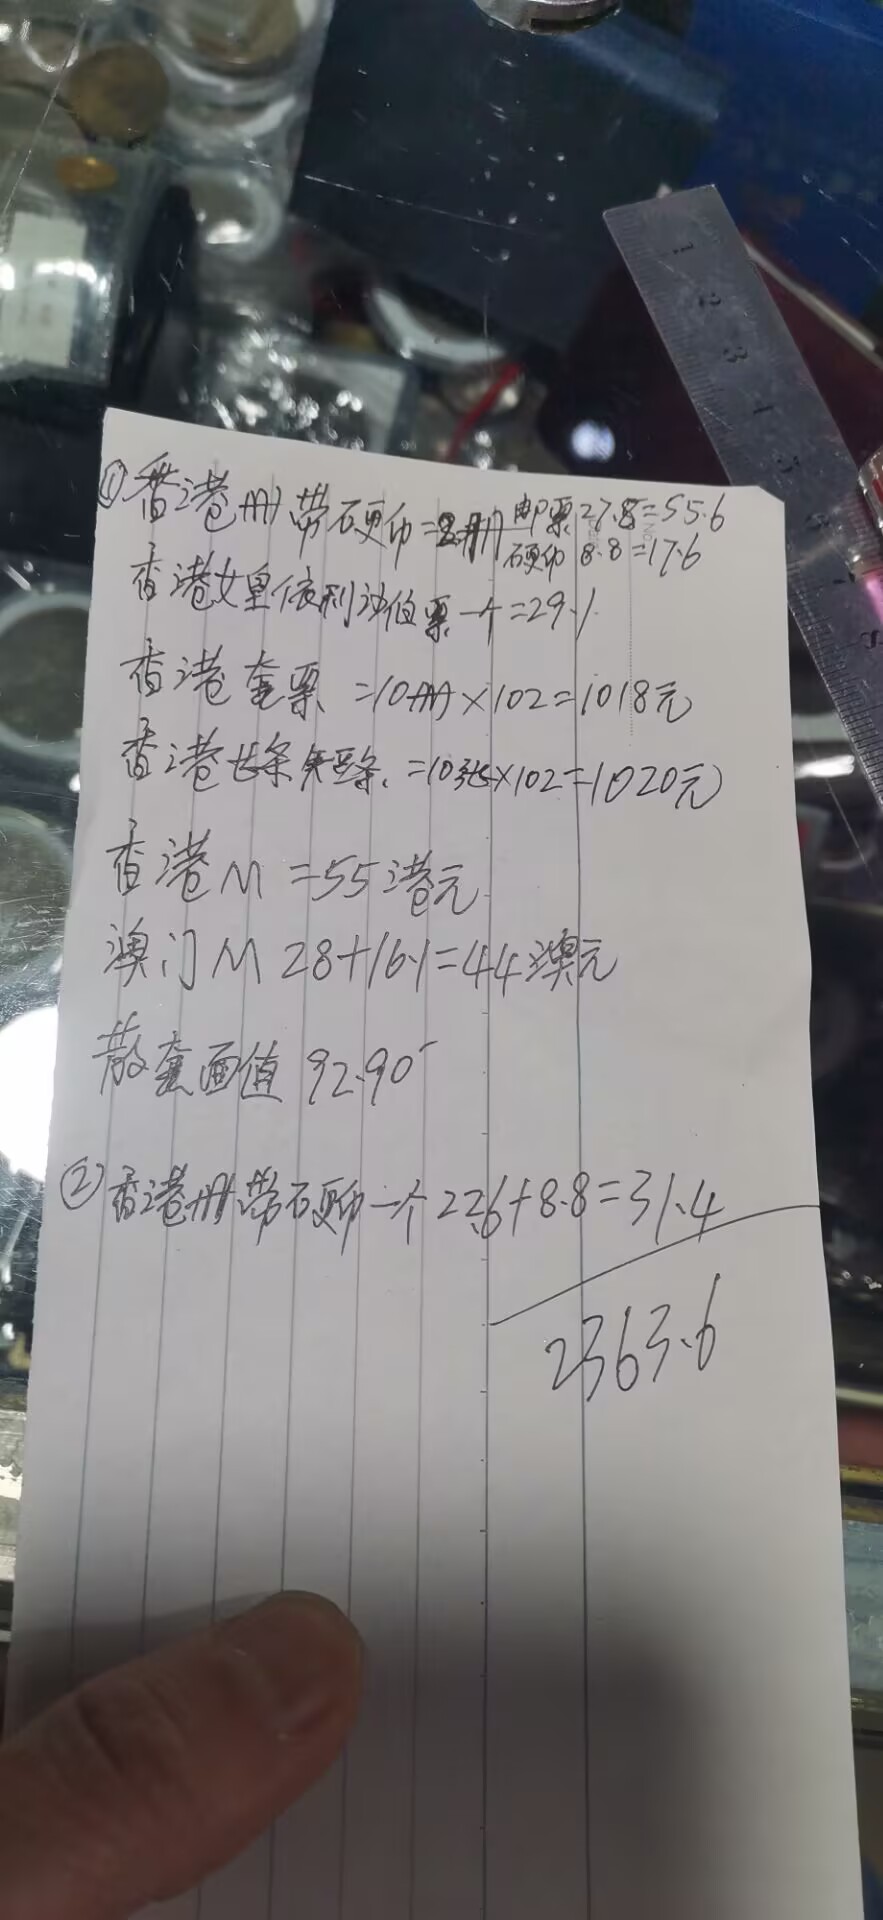 ①香港册带硬币=2册邮票27.8=55.6
硬币 8.8=17.6
香港女皇依利沙伯票一个=29.1
香港套票=10册×102=1018元
香港长条 =10张×102=1020元
香港M=55港元
澳门M 28+16.1=44澳元
散套面值 92.90
②香港册带硬币一个22.6+8.8=31.4
2363.6
1 2 3 4 5 6 7 8